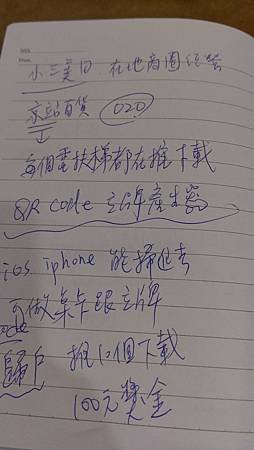 小三美日 在地商圈經營
京站百貨 O2O
↓
每個電扶梯都在推下載
QR code 立牌產生器
ios iphone 能掃進去
可做桌卡跟立牌
ode
歸戶 推12個下載
100元獎金